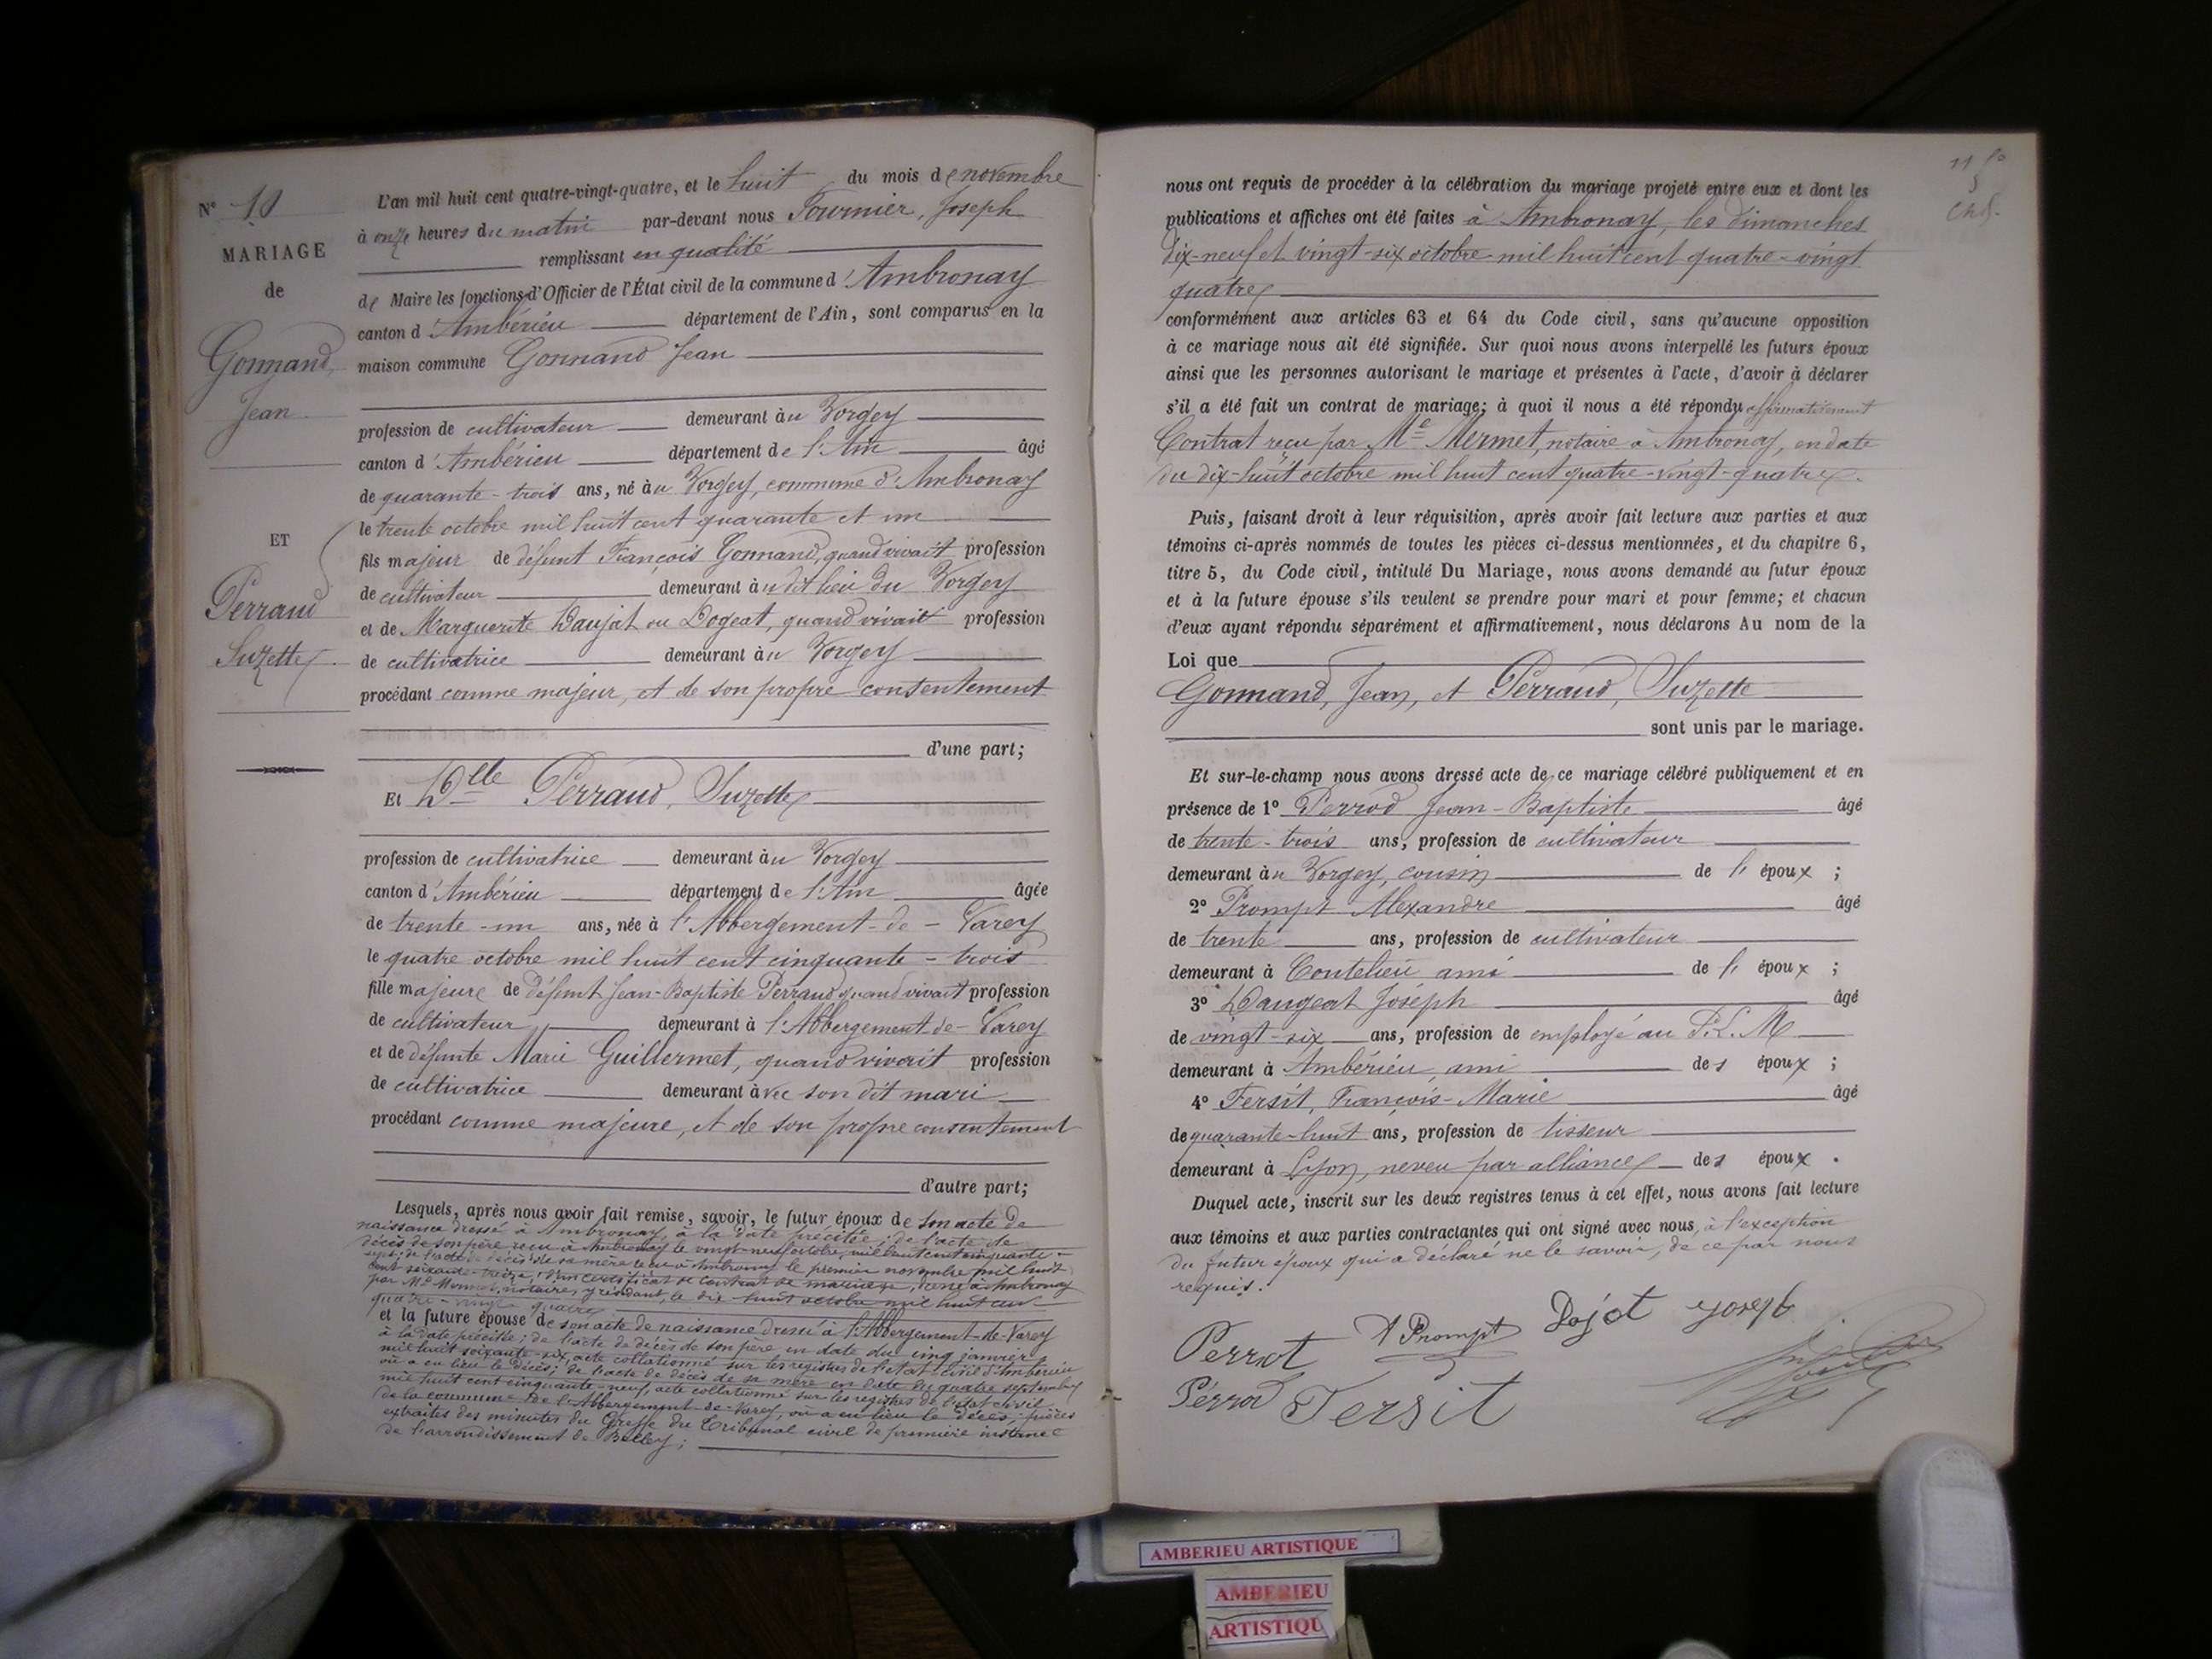 N° 10
MARIAGE
de
Gonnand,
Jean
ET
Perraud
Suzette
L'an mil huit cent quatre-vingt-quatre, et le huit du mois de novembre
à onze heures du matin par-devant nous Fournier, Joseph
remplissant en qualité
de Maire les fonctions d'Officier de l'État civil de la commune d'Ambronay
canton d'Ambérieu département de l'Ain, sont comparus en la
maison commune Gonnand Jean
profession de cultivateur demeurant au Vorgey
canton d'Ambérieu département de l'Ain âgé
de quarante-trois ans, né au Vorgey, commune d'Ambronay
le trente octobre mil huit cent quarante et un
fils majeur de défunt François Gonnand, quand vivait profession
de cultivateur demeurant au dit lieu du Vorgey
et de Marguerite Daujat ou Dogeat, quand vivait profession
de cultivatrice demeurant au Vorgey
procédant comme majeur, et de son propre consentement
d'une part;
Et Dlle Perraud, Suzette
profession de cultivatrice demeurant au Vorgey
canton d'Ambérieu département de l'Ain âgée
de trente-un ans, née à l'Abbergement-de-Varey
le quatre octobre mil huit cent cinquante-trois
fille majeure de défunt Jean-Baptiste Perraud quand vivait profession
de cultivateur demeurant à l'Abbergement-de-Varey
et de défunte Marie Guillermet, quand vivait profession
de cultivatrice demeurant avec son dit mari
procédant comme majeure, et de son propre consentement
d'autre part;
Lesquels, après nous avoir fait remise, savoir, le futur époux de son acte de
naissance dressé à Ambronay, à la date précitée; de l'acte de
décès de son père reçu à Ambronay le vingt-neuf octobre mil huit cent cinquante-
sept; de l'acte de décès de sa mère reçu à Ambronay le premier novembre mil huit
cent soixante-treize; d'un certificat de contrat de mariage, donné à Ambronay
par Me Mermet, notaire, y résidant, le dix-huit octobre mil huit cent
quatre-vingt quatre
et la future épouse de son acte de naissance dressé à l'Abbergement-de-Varey
à la date précitée; de l'acte de décès de son père en date du cinq janvier
mil huit soixante-six, acte collationné sur les registres de l'état-civil d'Ambérieu
où a eu lieu le décès; de l'acte de décès de sa mère en date du quatre septembre
mil huit cent cinquante-neuf, acte collationné sur les registres de l'état civil
de la commune de l'Abbergement-de-Varey, où a eu lieu le décès; pièces
extraites des minutes du Greffe du Tribunal civil de première instance
de l'arrondissement de Belley;
nous ont requis de procéder à la célébration du mariage projeté entre eux et dont les
publications et affiches ont été faites à Ambronay, les dimanches
dix-neuf et vingt-six octobre mil huit cent quatre-vingt
quatre
conformément aux articles 63 et 64 du Code civil, sans qu'aucune opposition
à ce mariage nous ait été signifiée. Sur quoi nous avons interpellé les futurs époux
ainsi que les personnes autorisant le mariage et présentes à l'acte, d'avoir à déclarer
s'il a été fait un contrat de mariage; à quoi il nous a été répondu affirmativement
Contrat reçu par Me Mermet, notaire à Ambronay, en date
du dix-huit octobre mil huit cent quatre-vingt-quatre.
Puis, faisant droit à leur réquisition, après avoir fait lecture aux parties et aux
témoins ci-après nommés de toutes les pièces ci-dessus mentionnées, et du chapitre 6,
titre 5, du Code civil, intitulé Du Mariage, nous avons demandé au futur époux
et à la future épouse s'ils veulent se prendre pour mari et pour femme; et chacun
d'eux ayant répondu séparément et affirmativement, nous déclarons Au nom de la
Loi que
Gonnand, Jean, et Perraud, Suzette
sont unis par le mariage.
Et sur-le-champ nous avons dressé acte de ce mariage célébré publiquement et en
présence de 1° Perrod Jean-Baptiste âgé
de trente-trois ans, profession de cultivateur
demeurant au Vorgey, cousin de l'époux;
2° Prompt Alexandre âgé
de trente ans, profession de cultivateur
demeurant à Coutelieu ami de l'époux;
3° Daugeat Joséph âgé
de vingt-six ans, profession de employé au P.L.M
demeurant à Ambérieu, ami des époux;
4° Tersit, François-Marie âgé
de quarante-huit ans, profession de tisseur
demeurant à Lyon, neveu par alliance des époux.
Duquel acte, inscrit sur les deux registres tenus à cet effet, nous avons fait lecture
aux témoins et aux parties contractantes qui ont signé avec nous, à l'exception
du futur époux qui a déclaré ne le savoir, de ce par nous
requis.
Perrot A Prompt Dojat yoseph
Pérrod Tersit
AMBERIEU ARTISTIQUE
AMBERIEU
ARTISTIQU